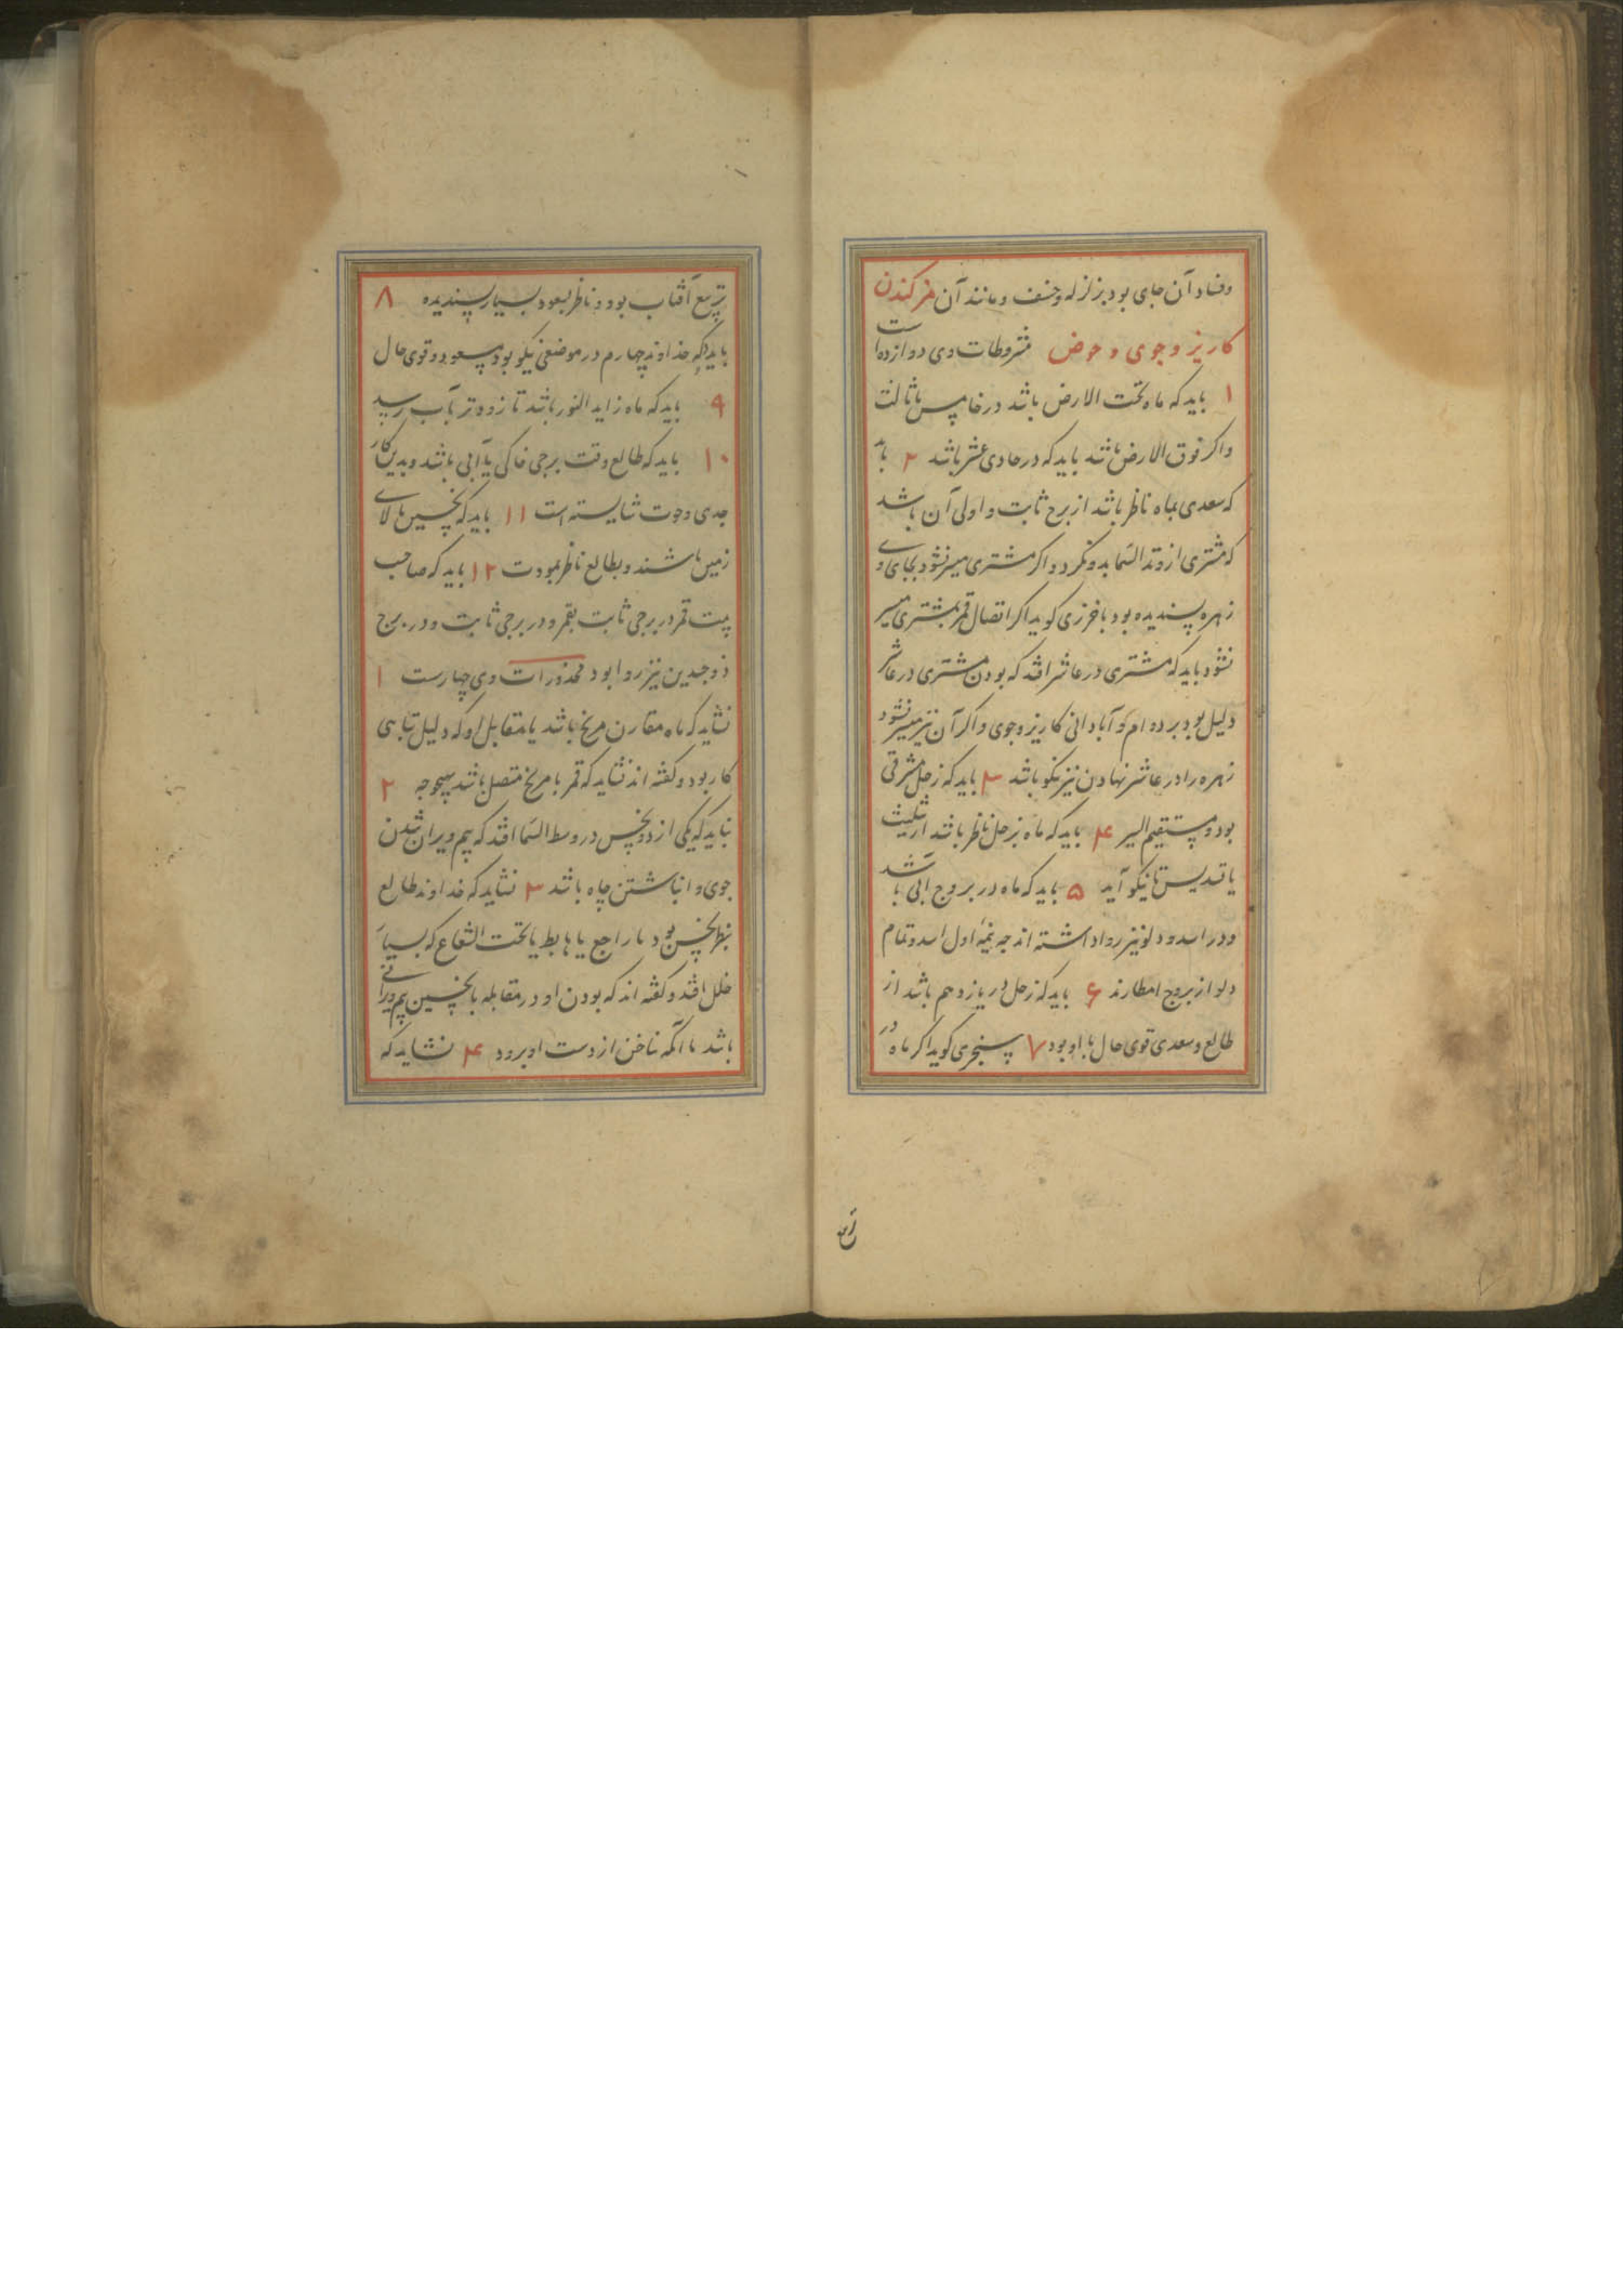 وفساد آن جای بود بزلزله وخسف و مانند آن مز کندن
کاریز و جوی و حوض مشروطات وی دوازده است
۱ باید که ماه تحت الارض باشد در خامس یا ثالث
واکر فوق الارض باشد باید که در حادی عشر باشد ۲ باید
که سعدی بماه ناظر باشد از برج ثابت و اولی آن باشد
که مشتری از وتد السما بدو نکرد و اکر مشتری میسر نشود بجای او
زهره پسندیده بود باخرزی کوید اکر اتصال قمر بمشتری میسر
نشود باید که مشتری در عاشر افتد که بودن مشتری در عاشر
دلیل بود بر دوام و آبادانی کاریز وجوی واکر آن نیز میسر نشود
زهره را در عاشر نهادن نیز نیکو باشد ۳ باید که زحل مشرقی
بود و مستقیم السیر ۴ باید که ماه بزحل ناظر باشد از تثلیث
یا تسدیس تا نیکو آید ۵ باید که ماه در بروج آبی باشد
ودر اسد و دلو نیز روا داشته اند چه نیمهٔ اول اسد و تمام
دلو از بروج امطارند ۶ باید که زحل در یازدهم باشد از
طالع و سعدی قوی حال با او بود ۷ سنجری کوید اکر ماه در
تربیع
تربیع آفتاب بود و ناظر بسعود بسیار پسندیده ۸
باید که خداوند چهارم در موضعی نیکو بود مسعود و قوی حال
۹ باید که ماه زاید النور باشد تا زودتر بآب رسد
۱۰ باید که طالع وقت برجی خاکی یا آبی باشد و بدین کار
جدی وحوت شایسته است ۱۱ باید که نحسین بالای
زمین باشند و بطالع ناظر بمودت ۱۲ باید که صاحب
بیت قمر در برجی ثابت بقمر و در برجی ثابت و در برج
ذوجسدین نیز روا بود محذورات وی چهارست ۱
نشاید که ماه مقارن مریخ باشد یا مقابل او که دلیل تباهی
کار بود و کفته اند نشاید که قمر با مریخ متصل باشد بهیچوجه ۲
نباید که یکی از دو نحس در وسط السما افتد که بیم ویران شدن
جوی و انباشتن چاه باشد ۳ نشاید که خداوند طالع
بنظر نحس بود یا راجع یا هابط یا تحت الشعاع که بسیار
خلل افتد و کفته اند که بودن او در مقابله با نحسین بیم ویرانی
باشد با آنکه ناخن از دست او برود ۴ نشاید که